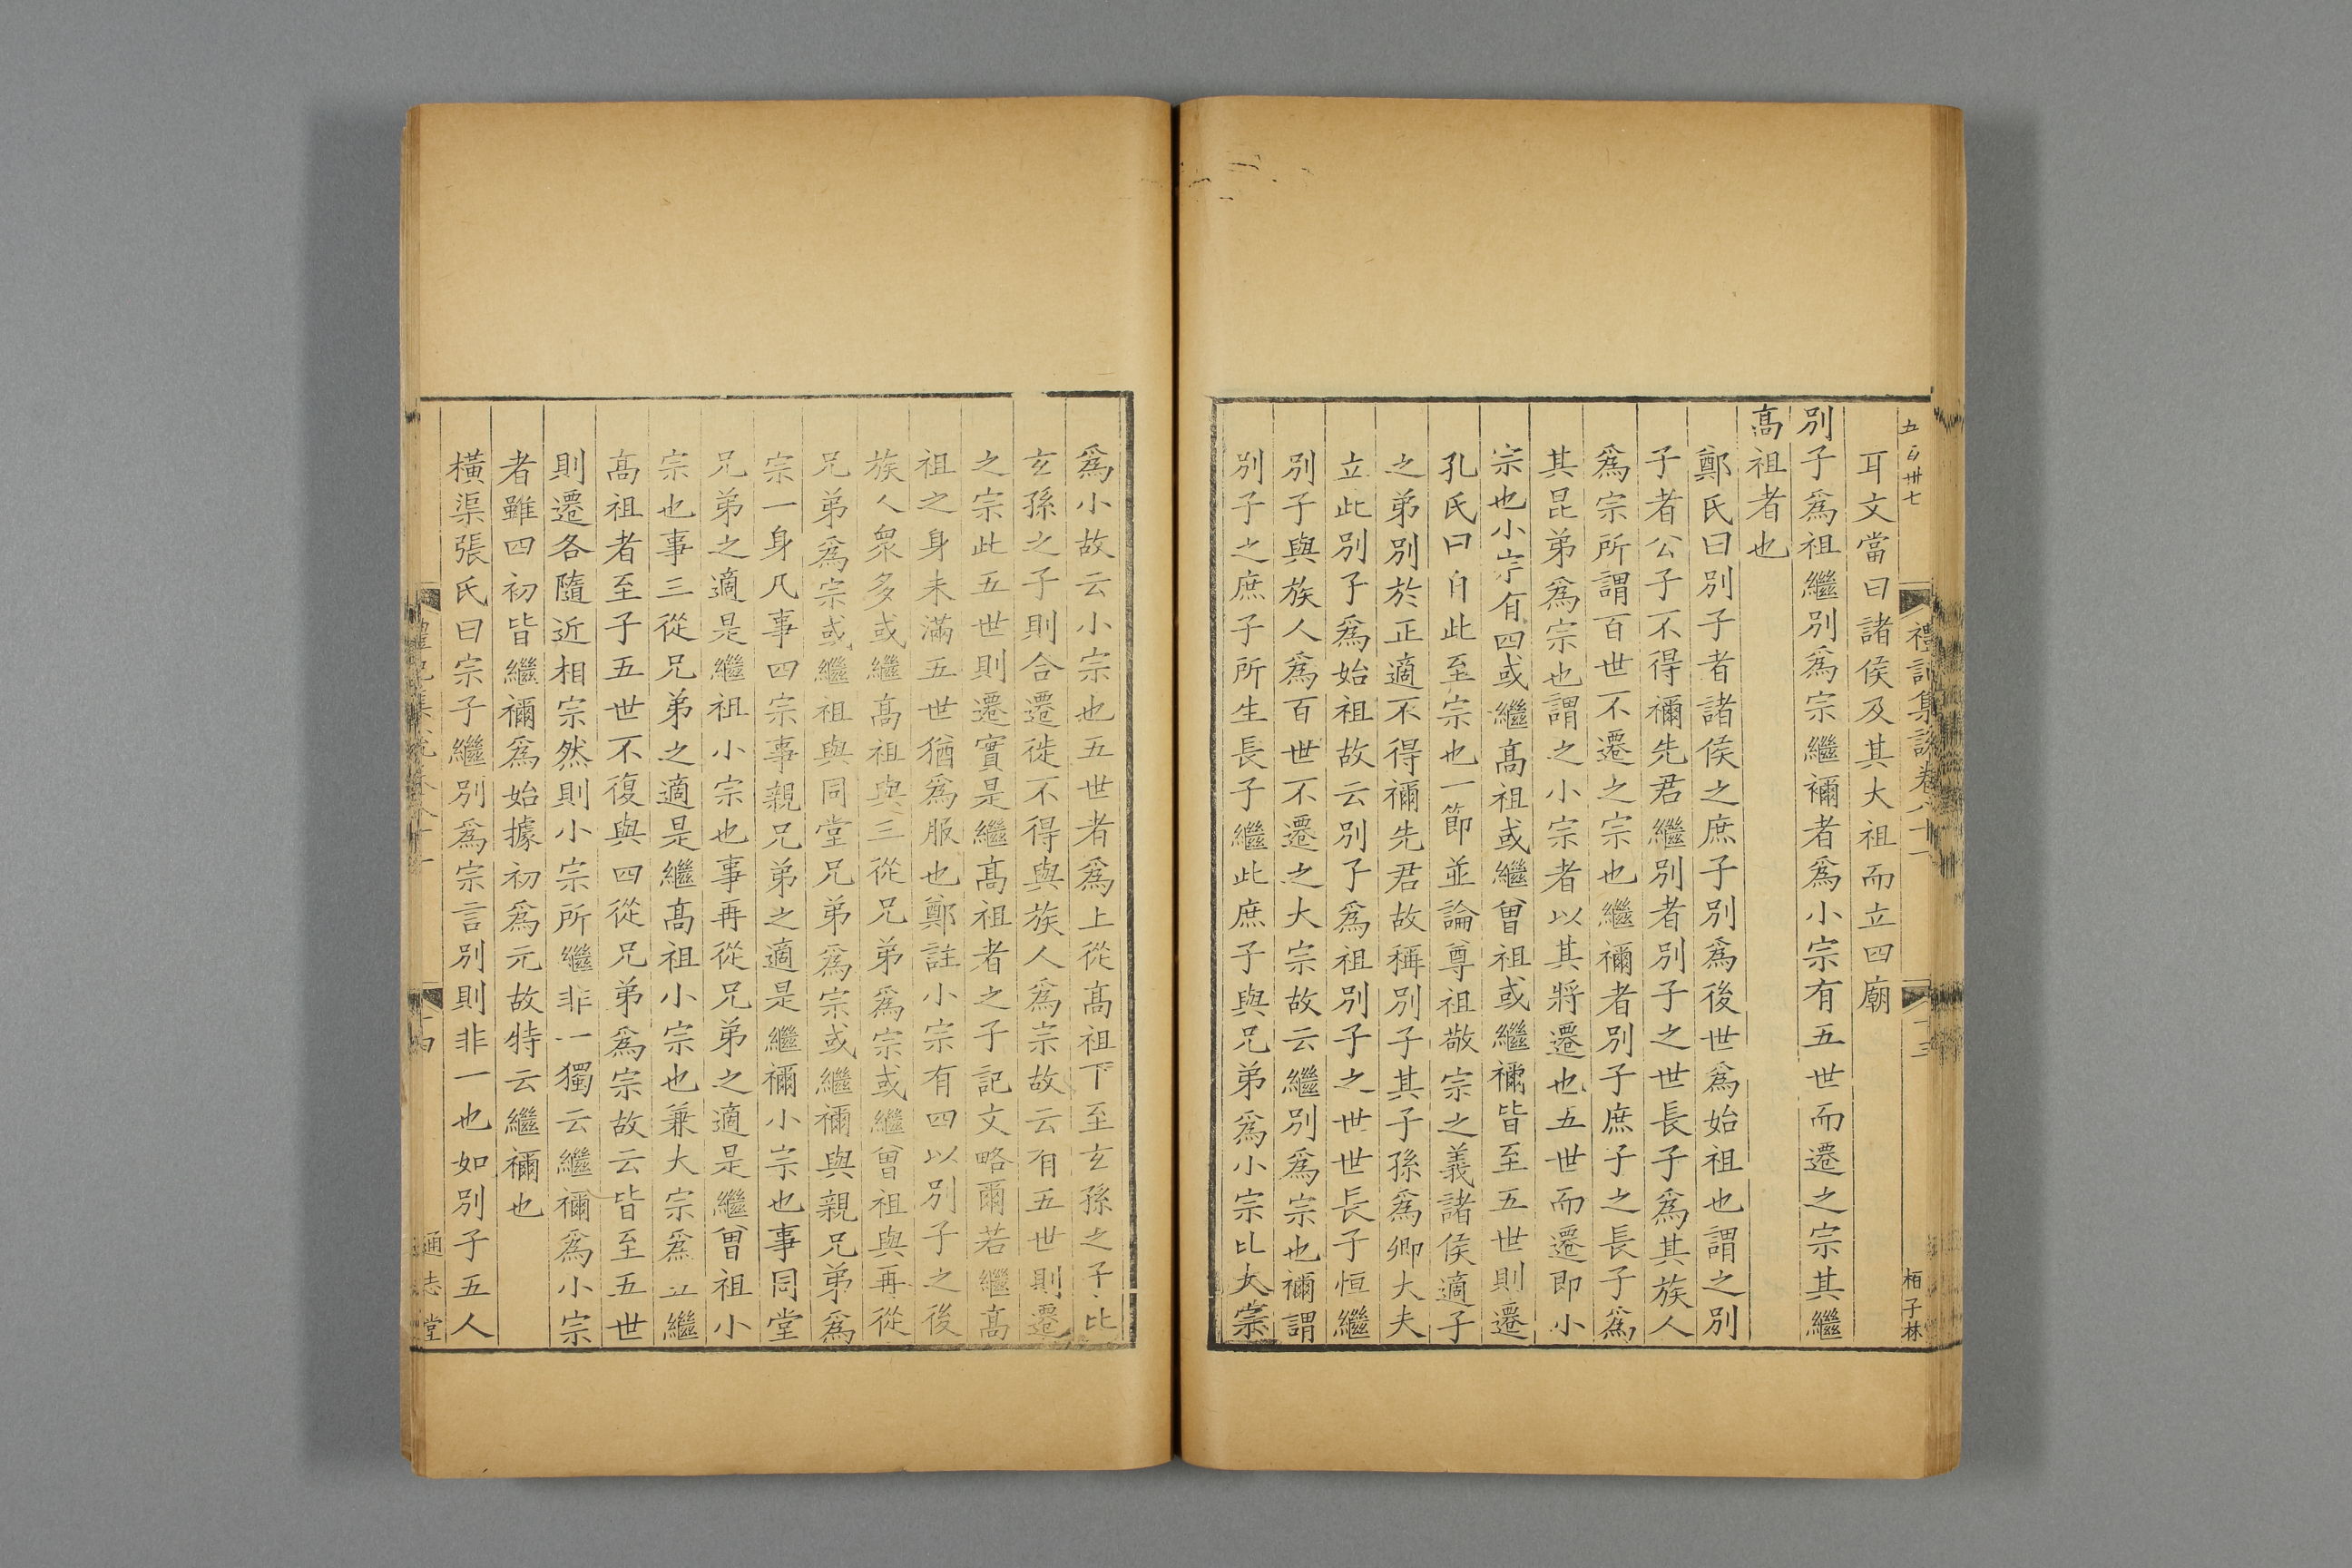 五百卅七
禮記集說卷八十一
十三
栢子林
耳文當曰諸侯及其大祖而立四廟
別子爲祖繼別爲宗繼禰者爲小宗有五世而遷之宗其繼
高祖者也
鄭氏曰別子者諸侯之庶子別爲後世爲始祖也謂之別
子者公子不得禰先君繼別者別子之世長子爲其族人
爲宗所謂百世不遷之宗也繼禰者別子庶子之長子爲
其昆弟爲宗也謂之小宗者以其將遷也五世而遷即小
宗也小宗有四或繼高祖或繼曾祖或繼禰皆至五世則遷
孔氏曰自此至宗也一節並論尊祖敬宗之義諸侯適子
之弟別於正適不得禰先君故稱別子其子孫爲卿大夫
立此別子爲始祖故云別子爲祖別子之世世長子恒繼
別子與族人爲百世不遷之大宗故云繼別爲宗也禰謂
別子之庶子所生長子繼此庶子與兄弟爲小宗比大宗
爲小故云小宗也五世者爲上從高祖下至玄孫之子比
玄孫之子則合遷徙不得與族人爲宗故云有五世則遷
之宗此五世則遷實是繼高祖者之子記文略爾若繼高
祖之身未滿五世猶爲服也鄭註小宗有四以別子之後
族人衆多或繼高祖與三從兄弟爲宗或繼曾祖與再從
兄弟爲宗或繼祖與同堂兄弟爲宗或繼禰與親兄弟爲
宗一身凡事四宗事親兄弟之適是繼禰小宗也事同堂
兄弟之適是繼祖小宗也事再從兄弟之適是繼曾祖小
宗也事三從兄弟之適是繼高祖小宗也兼大宗爲五繼
高祖者至子五世不復與四從兄弟爲宗故云皆至五世
則遷各隨近相宗然則小宗所繼非一獨云繼禰爲小宗
者雖四初皆繼禰爲始據初爲元故特云繼禰也
橫渠張氏曰宗子繼別爲宗言別則非一也如別子五人
禮記集說卷八十一
十四
通志堂